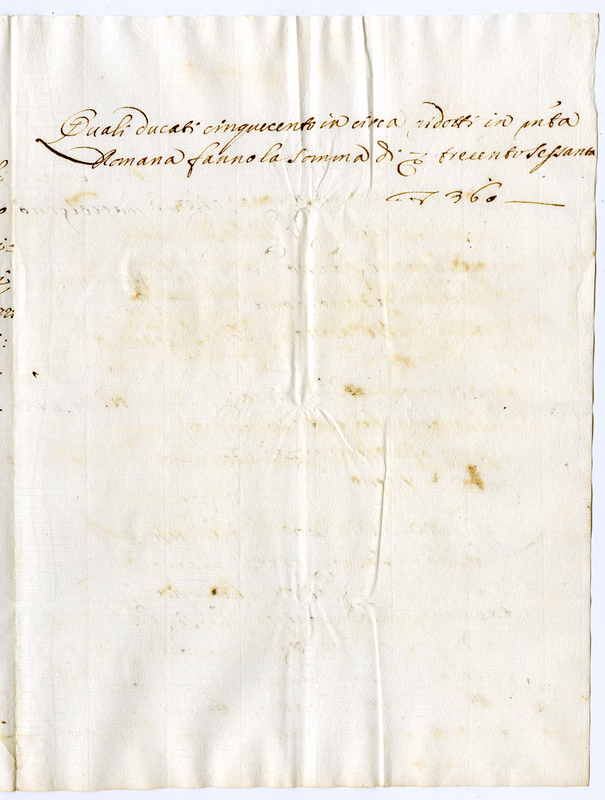 Quali ducati cinquecento in circa ridotti in mta
Romana fanno la somma di ∇ trecento sessanta
∇ 360